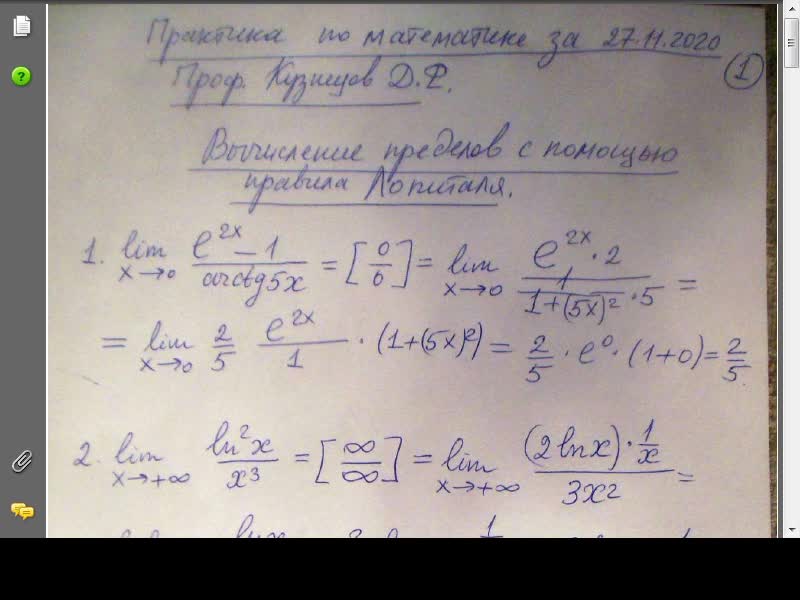 Практика по математике за 27.11.2020
Проф. Кузнецов Д.Ф.
1
Вычисление пределов с помощью
правила Лопиталя.
1. lim x→0 (e^{2x} − 1)/(arctg 5x) = [0/0] = lim x→0 (e^{2x} · 2)/(1/(1+(5x)^2) · 5) =
= lim x→0 2/5 e^{2x}/1 · (1+(5x)^2) = 2/5 · e^0 · (1+0) = 2/5.
2. lim x→+∞ ln^2 x/x^3 = [∞/∞] = lim x→+∞ ((2 ln x) · 1/x)/(3x^2) =